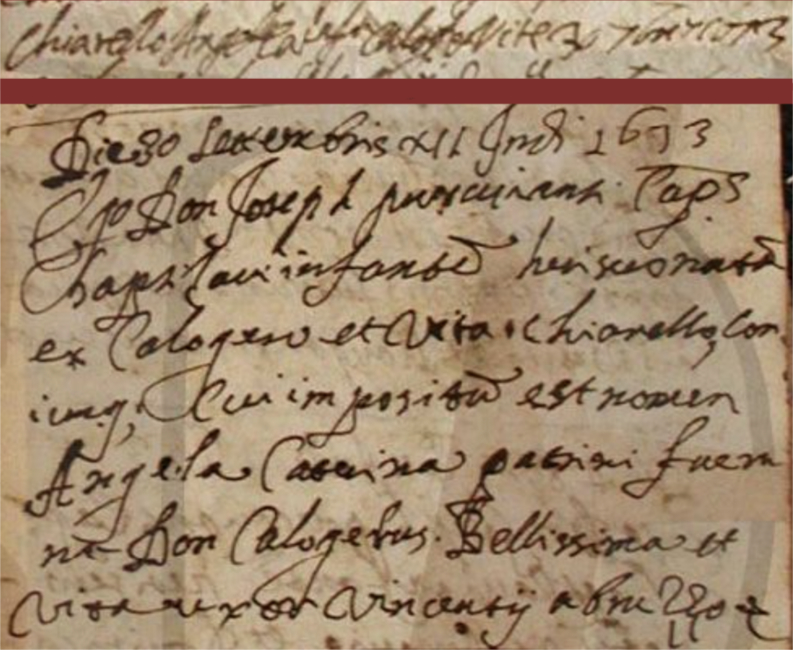 Chiarello Angela
Die 30 settembris XII Indi 1693
Ego Don Joseph Capˢ
Baptizavi infantē heri sero natā
ex Calogero et Vita Chiarello, con
iug; Cui impositū est nomen
Angela Caterina patrini fuerū
nt Don Calogerus Bellissima et
Vita uxor Vincentij abruzzo